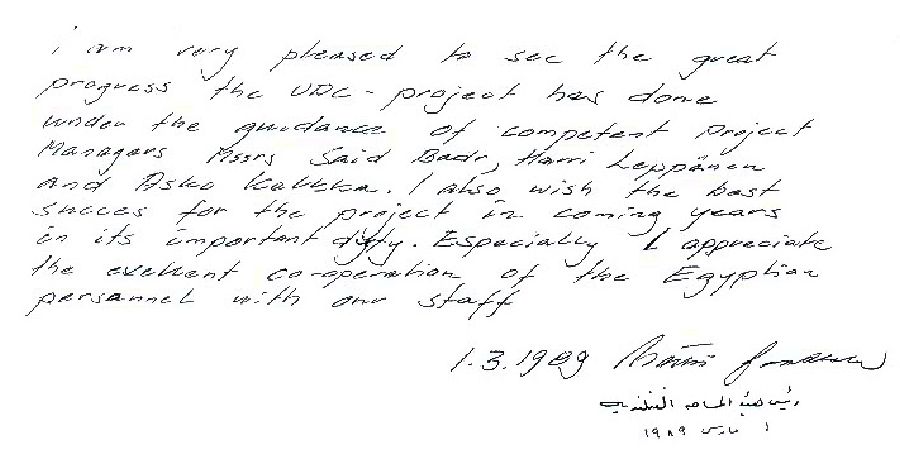 i am very pleased to see the great
progress the UDC - project has done
under the guidance of competent Project
Managers Mssrs Said Badr, Harri Leppänen
and Asko Kalikka. I also wish the best
succes for the project in coming years
in its important duty. Especially I appreciate
the exellent co-operation of the Egyptian
personnel with our staff
1.3.1989
رئيس هيئة المساحة الفنلندية
١ مارس ١٩٨٩